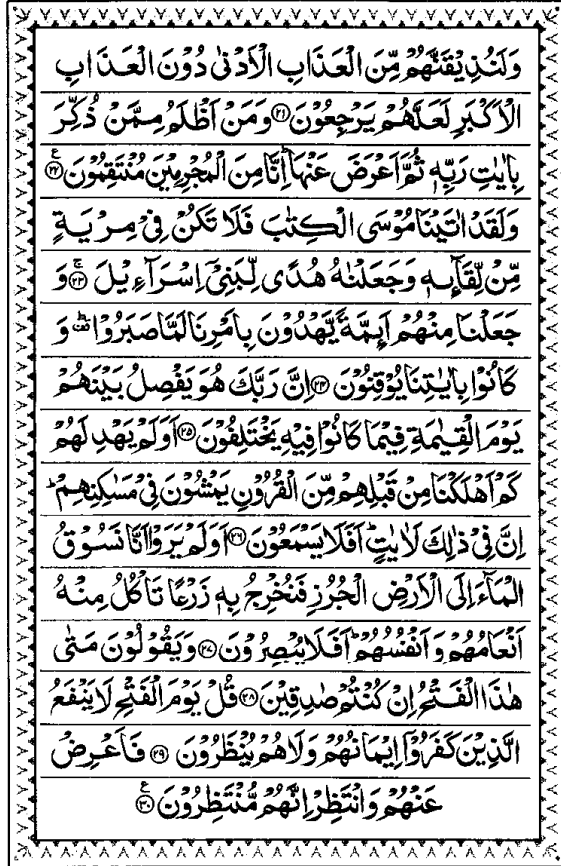 وَلَنُذِيۡقَنَّهُمۡ مِّنَ الۡعَذَابِ الۡاَدۡنٰى دُوۡنَ الۡعَذَابِ
الۡاَكۡبَرِ لَعَلَّهُمۡ يَرۡجِعُوۡنَ ﴿۲۱﴾ وَمَنۡ اَظۡلَمُ مِمَّنۡ ذُكِّرَ
بِاٰيٰتِ رَبِّهٖ ثُمَّ اَعۡرَضَ عَنۡهَاؕ اِنَّا مِنَ الۡمُجۡرِمِيۡنَ مُنۡتَقِمُوۡنَ ﴿۲۲﴾ ع
وَلَقَدۡ اٰتَيۡنَا مُوۡسَى الۡكِتٰبَ فَلَا تَكُنۡ فِىۡ مِرۡيَةٍ
مِّنۡ لِّقَآٮِٕهٖ وَجَعَلۡنٰهُ هُدًى لِّبَنِىۡۤ اِسۡرَآءِيۡلَ ﴿۲۳﴾ۚ وَ
جَعَلۡنَا مِنۡهُمۡ اَٮِٕمَّةً يَّهۡدُوۡنَ بِاَمۡرِنَا لَمَّا صَبَرُوۡا ؕ وَ
كَانُوۡا بِاٰيٰتِنَا يُوۡقِنُوۡنَ ﴿۲۴﴾ اِنَّ رَبَّكَ هُوَ يَفۡصِلُ بَيۡنَهُمۡ
يَوۡمَ الۡقِيٰمَةِ فِيۡمَا كَانُوۡا فِيۡهِ يَخۡتَلِفُوۡنَ ﴿۲۵﴾ اَوَلَمۡ يَهۡدِ لَهُمۡ
كَمۡ اَهۡلَكۡنَا مِنۡ قَبۡلِهِمۡ مِّنَ الۡقُرُوۡنِ يَمۡشُوۡنَ فِىۡ مَسٰكِنِهِمۡؕ
اِنَّ فِىۡ ذٰلِكَ لَاٰيٰتٍؕ اَفَلَا يَسۡمَعُوۡنَ ﴿۲۶﴾ اَوَلَمۡ يَرَوۡا اَنَّا نَسُوۡقُ
الۡمَآءَ اِلَى الۡاَرۡضِ الۡجُرُزِ فَنُخۡرِجُ بِهٖ زَرۡعًا تَاۡكُلُ مِنۡهُ
اَنۡعَامُهُمۡ وَاَنۡفُسُهُمۡؕ اَفَلَا يُبۡصِرُوۡنَ ﴿۲۷﴾ وَيَقُوۡلُوۡنَ مَتٰى
هٰذَا الۡفَتۡحُ اِنۡ كُنۡتُمۡ صٰدِقِيۡنَ ﴿۲۸﴾ قُلۡ يَوۡمَ الۡفَتۡحِ لَا يَنۡفَعُ
الَّذِيۡنَ كَفَرُوۡۤا اِيۡمَانُهُمۡ وَلَا هُمۡ يُنۡظَرُوۡنَ ﴿۲۹﴾ فَاَعۡرِضۡ
عَنۡهُمۡ وَانۡتَظِرۡ اِنَّهُمۡ مُّنۡتَظِرُوۡنَ ﴿۳۰﴾ ع